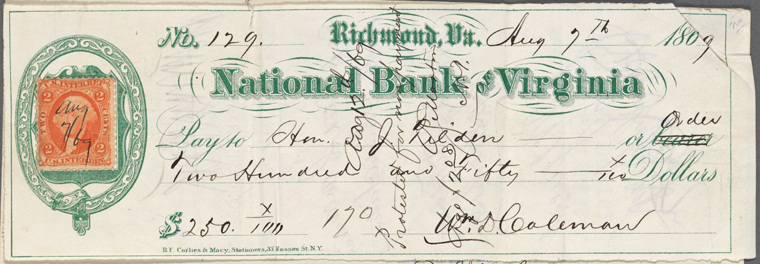 No. 129. Richmond, Va. Aug 7th 1869
National Bank OF Virginia
U.S. INTER. REV.
2 2
TWO CENTS
Aug
7/69
U.S. INTER. REV.
Pay to Hon. J Tilden or bearer Order
Two Hundred and Fifty Dollars
$250. x/100 170 Wm D Coleman
B.F. Corlies & Macy, Stationers, 33 Nassau St. N.Y.
Protested for nonpayment
Aug 12th /69